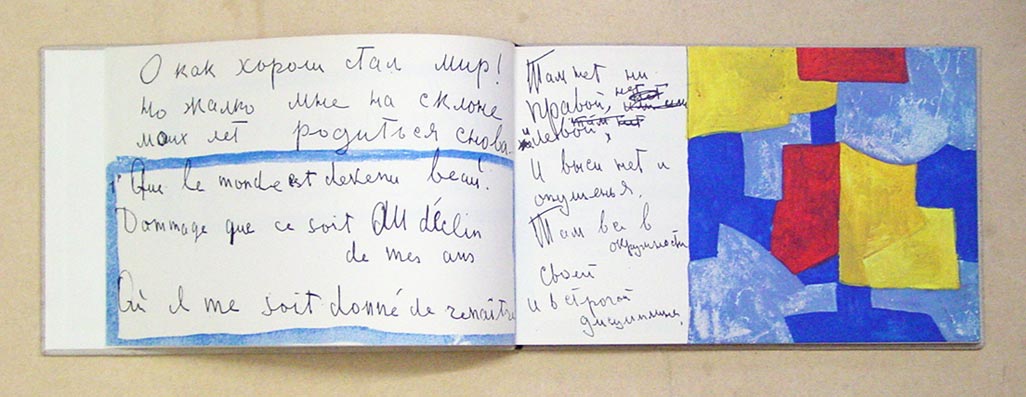 О как хорош стал мир!
но жалко мне на склоне
моих лет родиться снова.
Que le monde est devenu beau!
Dommage que ce soit au déclin
de mes ans
Où il me soit donné de renaître
Там нет ни
правой, нет
и левой,
И выси нет и
опущенья.
Там все в
окружности
своей
и в строгой
дисциплине.